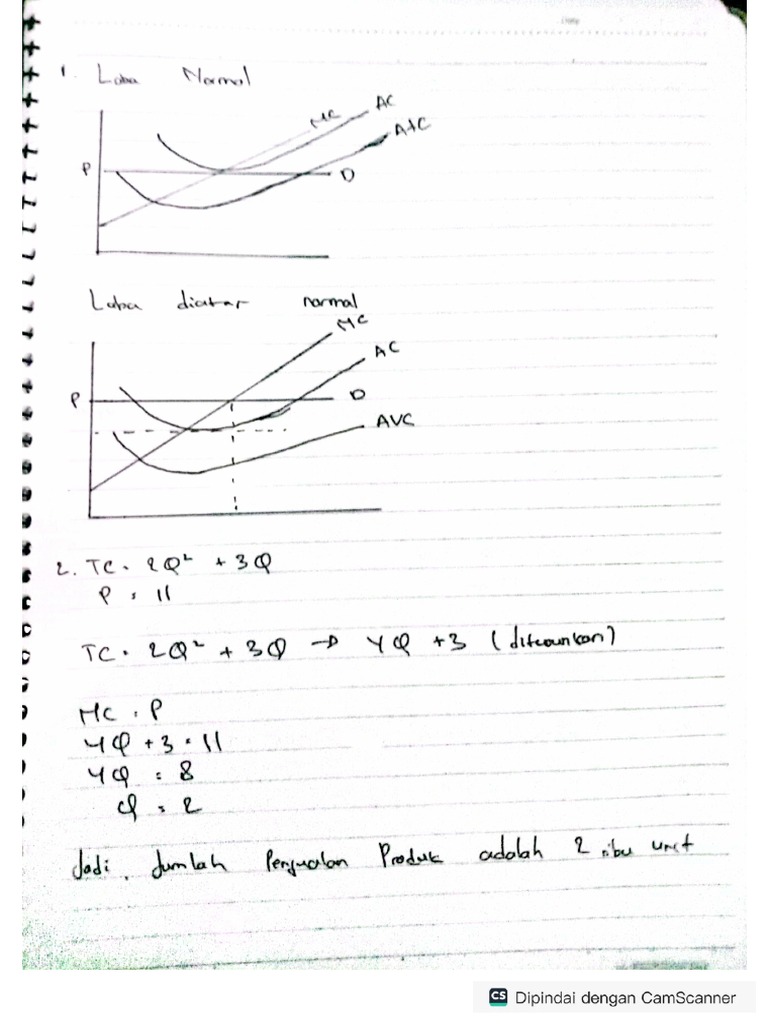 1. Laba Normal
MC
AC
AVC
P
D
Laba diatas normal
MC
AC
P
D
AVC
2. TC = 2Q² + 3Q
P = 11
TC = 2Q² + 3Q → 4Q + 3 (diturunkan)
MC = P
4Q + 3 = 11
4Q = 8
Q = 2
Jadi, Jumlah Penjualan Produk adalah 2 ribu unit
CS Dipindai dengan CamScanner